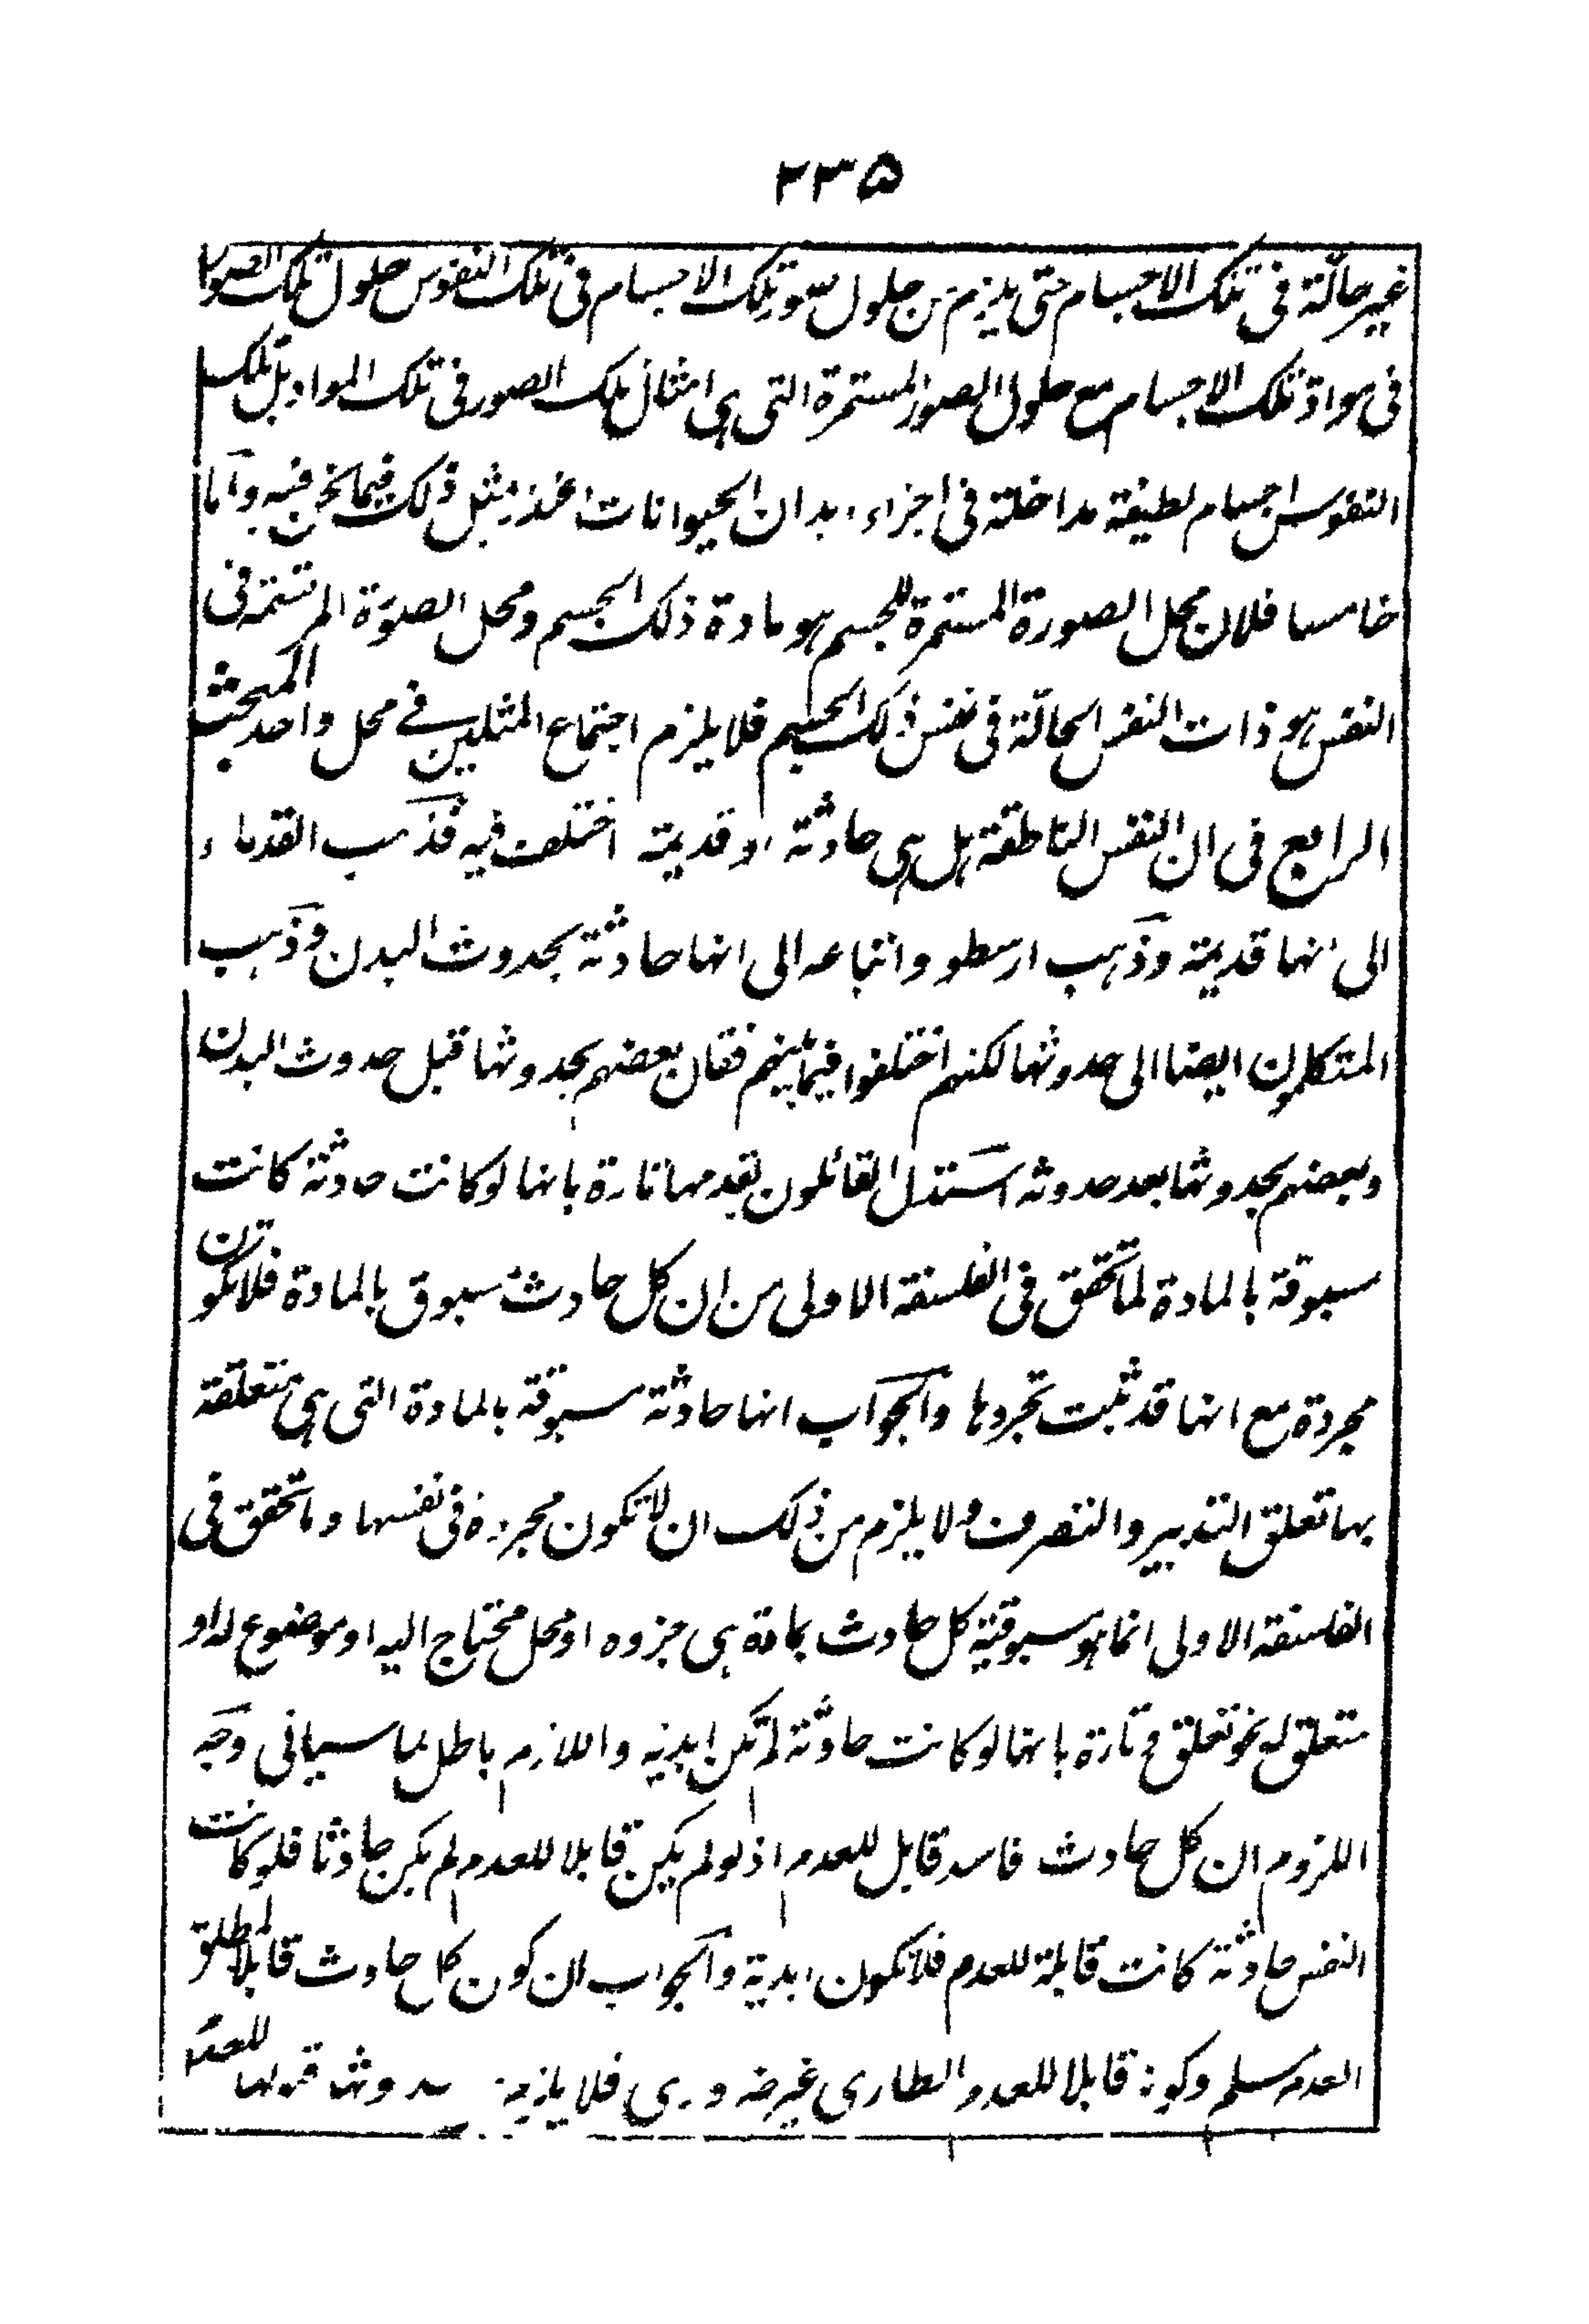 ۲۳۵
غير حالّة فى تلك الاجسام حتى يلزم من حلول صور تلك الاجسام فى تلك النفوس حلول تلك الصور
فى مواد تلك الاجسام مع حلول الصور المستمرة التى هى امثال تلك الصور فى تلك المواد بل تلك
النفوس اجسام لطيفة مداخلة فى اجزاء ابدان الحيوانات عندهم مثل ذلك فيما نحن فيه وآما
خامسا فلان محل الصورة المستمرة للجسم هو مادة ذلك الجسم ومحل الصورة المرتسمة فى
النفس هو ذات النفس الحالّة فى نفس ذلك الجسم فلا يلزم اجتماع المثلين فے محل واحد المبحث
الرابع فى ان النفس الناطقة هل هى حادثة او قديمة اختلف فيه فذهب القدماء
الى انها قديمة وذهب ارسطو واتباعه الى انها حادثة بحدوث البدن وذهب
المتكلمون ايضا الى حدوثها لكنهم اختلفوا فيما بينهم فقال بعضهم بحدوثها قبل حدوث البدن
وبعضهم بحدوثها بعد حدوثه استدل القائلون بقدمها تارة بانها لو كانت حادثة كانت
مسبوقة بالمادة لما تحقق فى الفلسفة الاولى من ان كل حادث مسبوق بالمادة فلا تكون
مجردة مع انها قد ثبت تجردها والجواب انها حادثة مسبوقة بالمادة التى هى متعلقة
بها تعلق التدبير والتصرف ولا يلزم من ذلك ان لا تكون مجردة فى نفسها وما تحقق فى
الفلسفة الاولى انما هو مسبوقية كل حادث بمادة هى جزوه او محل محتاج اليه او موضوع له او
متعلق له نحو تعلق وتارة بانها لو كانت حادثة لم تكن ابدية واللازم باطل لما سياتى وجه
اللزوم ان كل حادث فاسد قابل للعدم اذ لو لم يكن قابلا للعدم لم يكن حادثا فلو كانت
النفس حادثة كانت قابلة للعدم فلا تكون ابدية والجواب ان كون كل حادث قابلا لمطلق
العدم مسلم وكونه قابلا للعدم الطارى غير ضرورى فلا يلزم من حدوثها قبولها للعدم